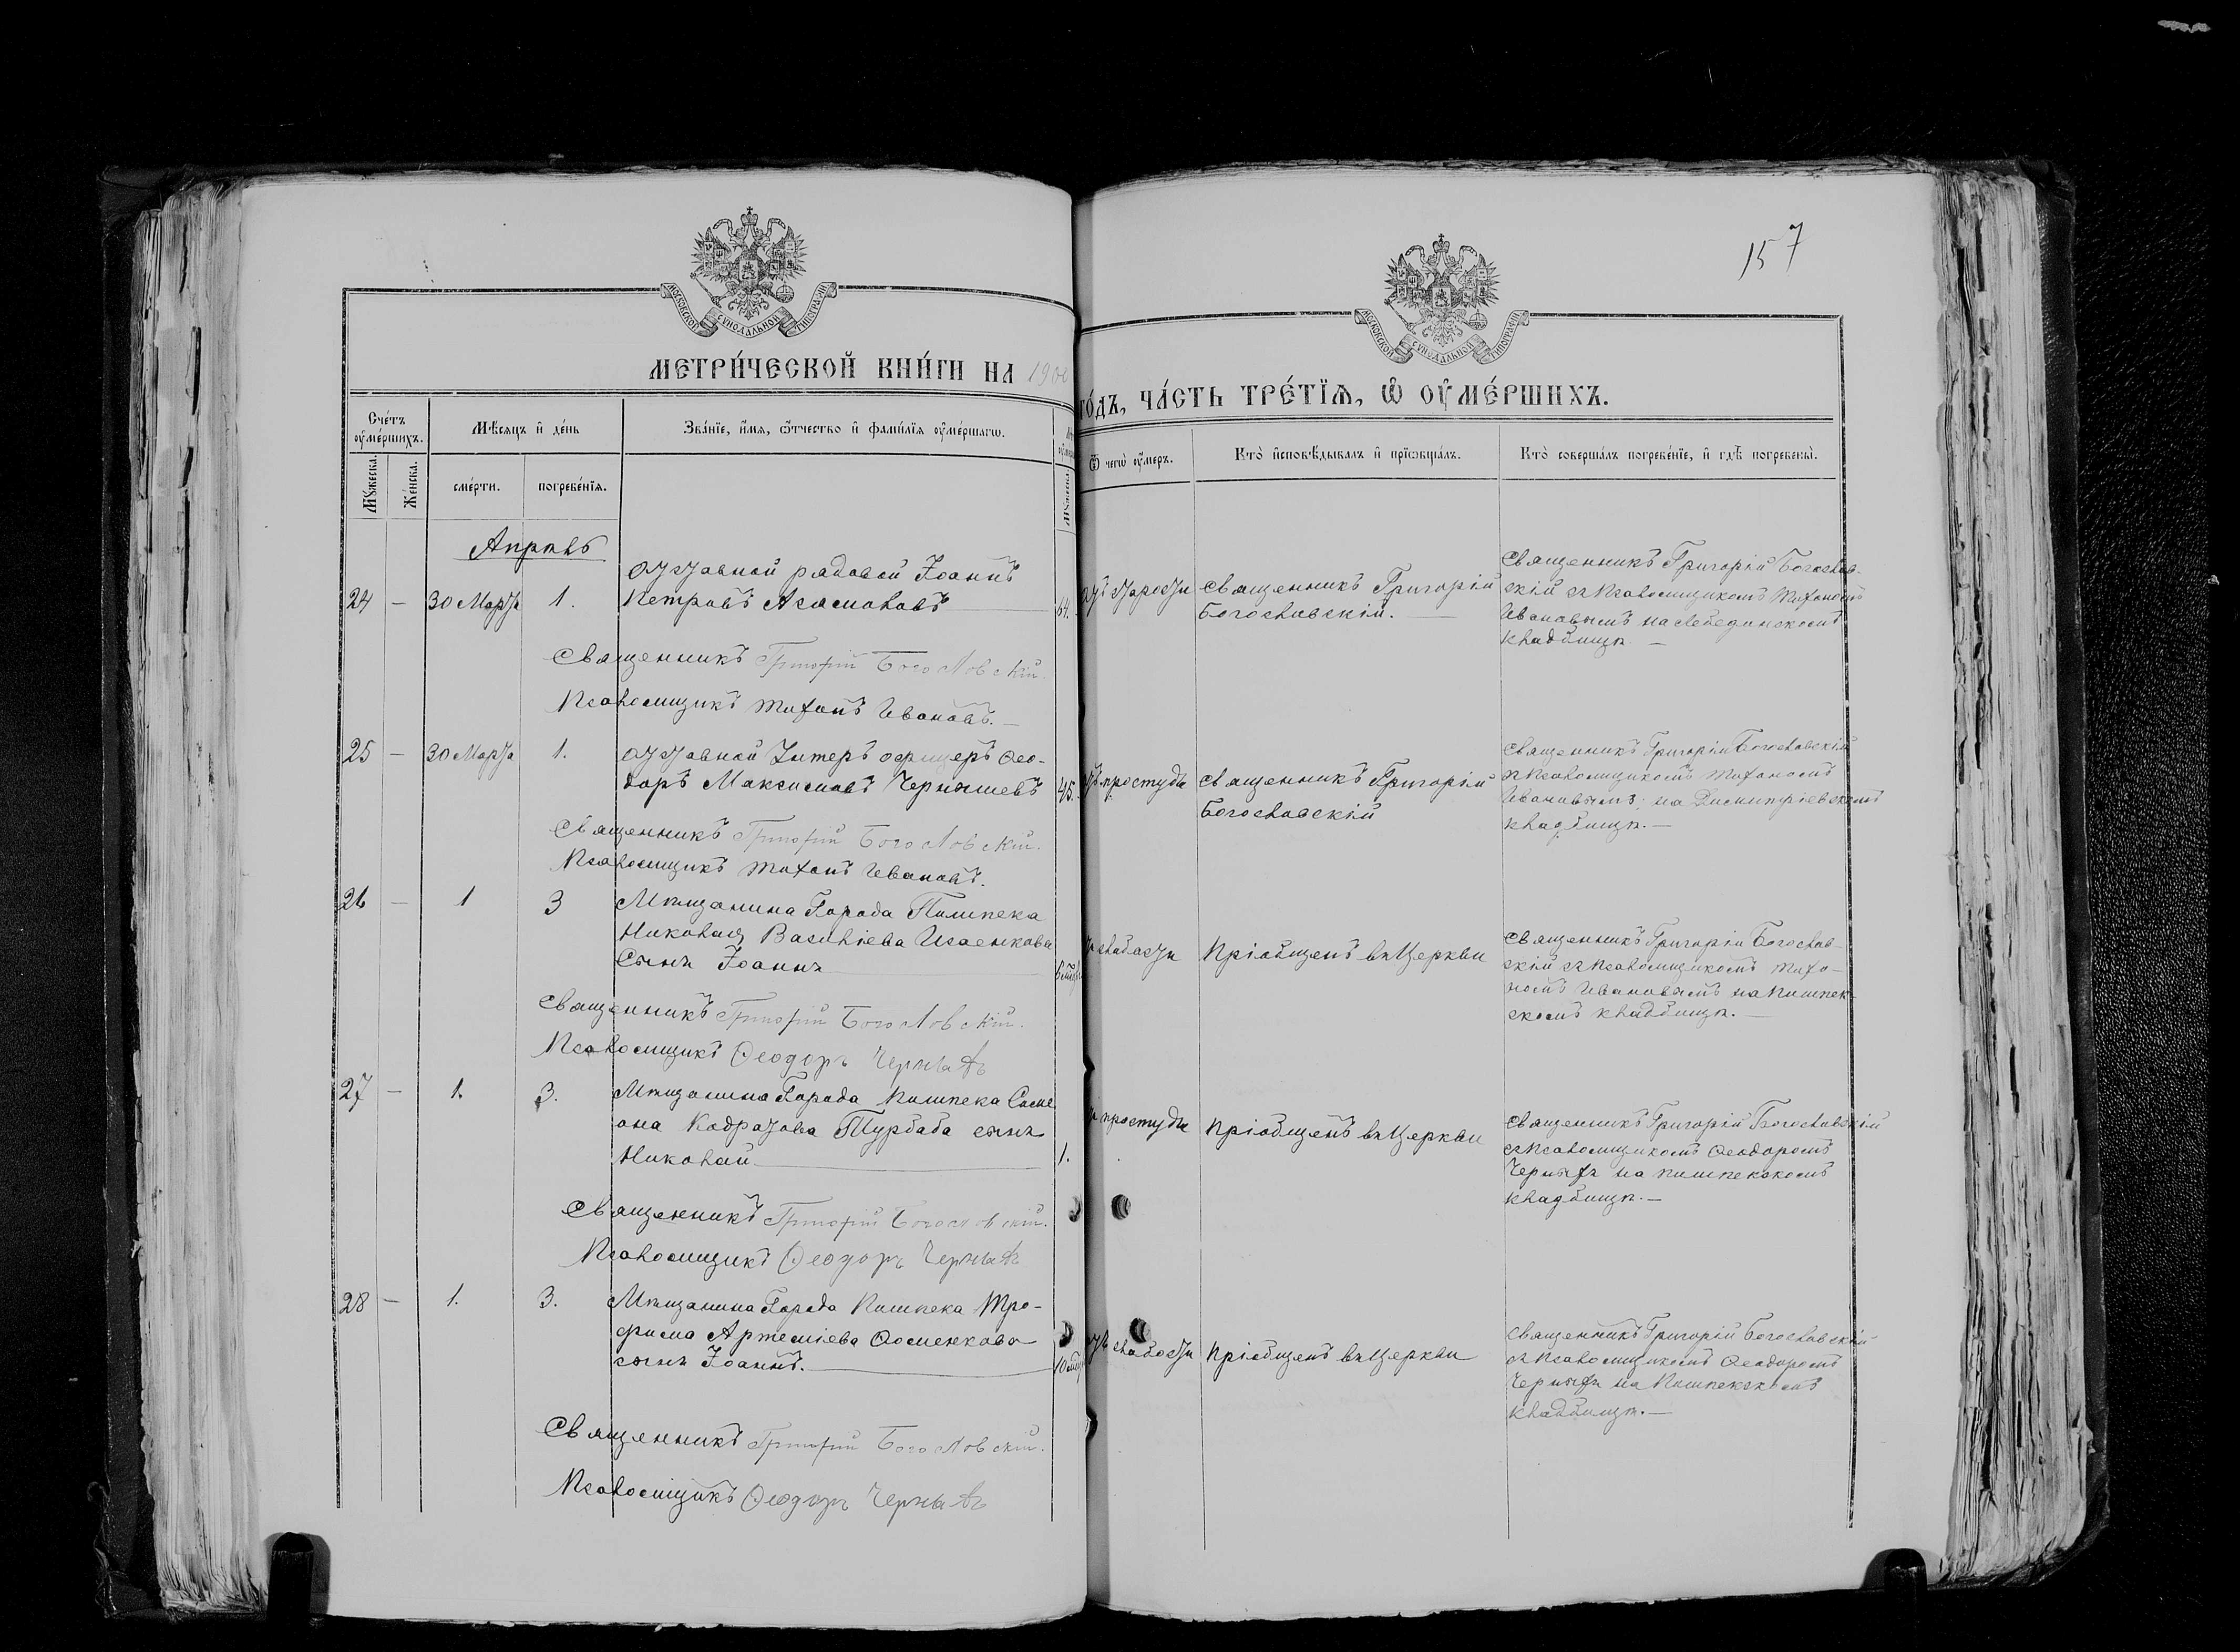 157
МОСКОВСКОЙ СѴНОДАЛЬНОЙ ТИПОГРАФІИ
МОСКОВСКОЙ СѴНОДАЛЬНОЙ ТИПОГРАФІИ
МЕТРИ́ЧЕСКОЙ КНИ́ГИ НА 1900
ГО́ДЪ, ЧА́СТЬ ТРЕ́ТЇѦ, Ѽ ОУ҆МЕ́РШИХЪ.
Сче́тъ оу҆ме́ршихъ.
Мѣ́сяцъ и҆ де́нь
Зва́нїе, и҆́мя, ѻ҆́тчество и҆ фами́лїя оу҆ме́ршагѡ.
Ѿ чегѡ̀ оу҆́меръ.
Кто̀ и҆сповѣ́дывалъ и҆ прїѡбща́лъ.
Кто̀ соверша́лъ погребе́нїе, и҆ гдѣ̀ погребены̀.
Мꙋ́жеска.
Же́нска.
сме́рти.
погребе́нїя.
Мꙋ́жеска
Апрѣль
24 — 30 Марта 1.
Отставной рядовой Іоаннъ
Петровъ
64.
отъ старости
Священникъ Григорій
Богословскій.
Священникъ Григорій Богослов-
скій съ Псаломщикомъ Тихономъ
Ивановымъ на Лебединскомъ
кладбищѣ. —
Священникъ Григорій Богословскій.
Псаломщикъ Тихонъ Ивановъ. —
25 — 30 Марта 1.
Отставной Унтеръ офицеръ Ѳео-
доръ Максимовъ Чернышевъ
45.
отъ простуды
Священникъ Григорій
Богословскій
Священникъ Григорій Богословскій
съ Псаломщикомъ Тихономъ
Ивановымъ; на Димитріевскомъ
кладбищѣ. —
Священникъ Григорій Богословскій.
Псаломщикъ Тихонъ Ивановъ.
26 — 1 3
Мѣщанина Города Пишпека
Николая Василіева Исаенкова
сынъ Іоаннъ
6 мѣс.
отъ слабости
Пріобщенъ въ Церкви
Священникъ Григорій Богослов-
скій съ Псаломщикомъ Тихо-
номъ Ивановымъ на Пишпек-
скомъ кладбищѣ. —
Священникъ Григорій Богословскій.
Псаломщикъ Ѳеодоръ Черныхъ
27 — 1. 3.
Мѣщанина Города Пишпека Симе
она Турбаба сынъ
Николай
1.
отъ простуды
Пріобщенъ въ Церкви
Священникъ Григорій Богословскій
съ Псаломщикомъ Ѳеодоромъ
Черныхъ на Пишпекскомъ
кладбищѣ. —
Священникъ Григорій Богословскій.
Псаломщикъ Ѳеодоръ Черныхъ
28 — 1. 3.
Мѣщанина Города Пишпека Тро-
фима Артеміева
сынъ Іоаннъ.
10 мѣс.
отъ слабости
Пріобщенъ въ Церкви
Священникъ Григорій Богословскій
съ Псаломщикомъ Ѳеодоромъ
Черныхъ на Пишпекскомъ
кладбищѣ. —
Священникъ Григорій Богословскій.
Псаломщикъ Ѳеодоръ Черныхъ